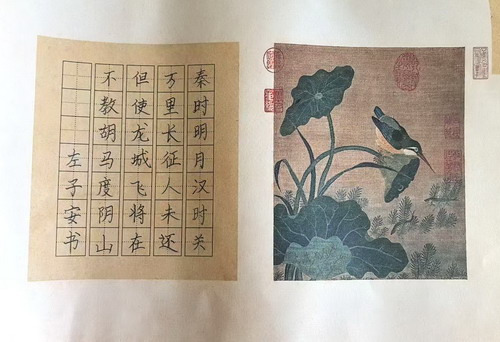 秦时明月汉时关
万里长征人未还
但使龙城飞将在
不教胡马度阴山
左子安书